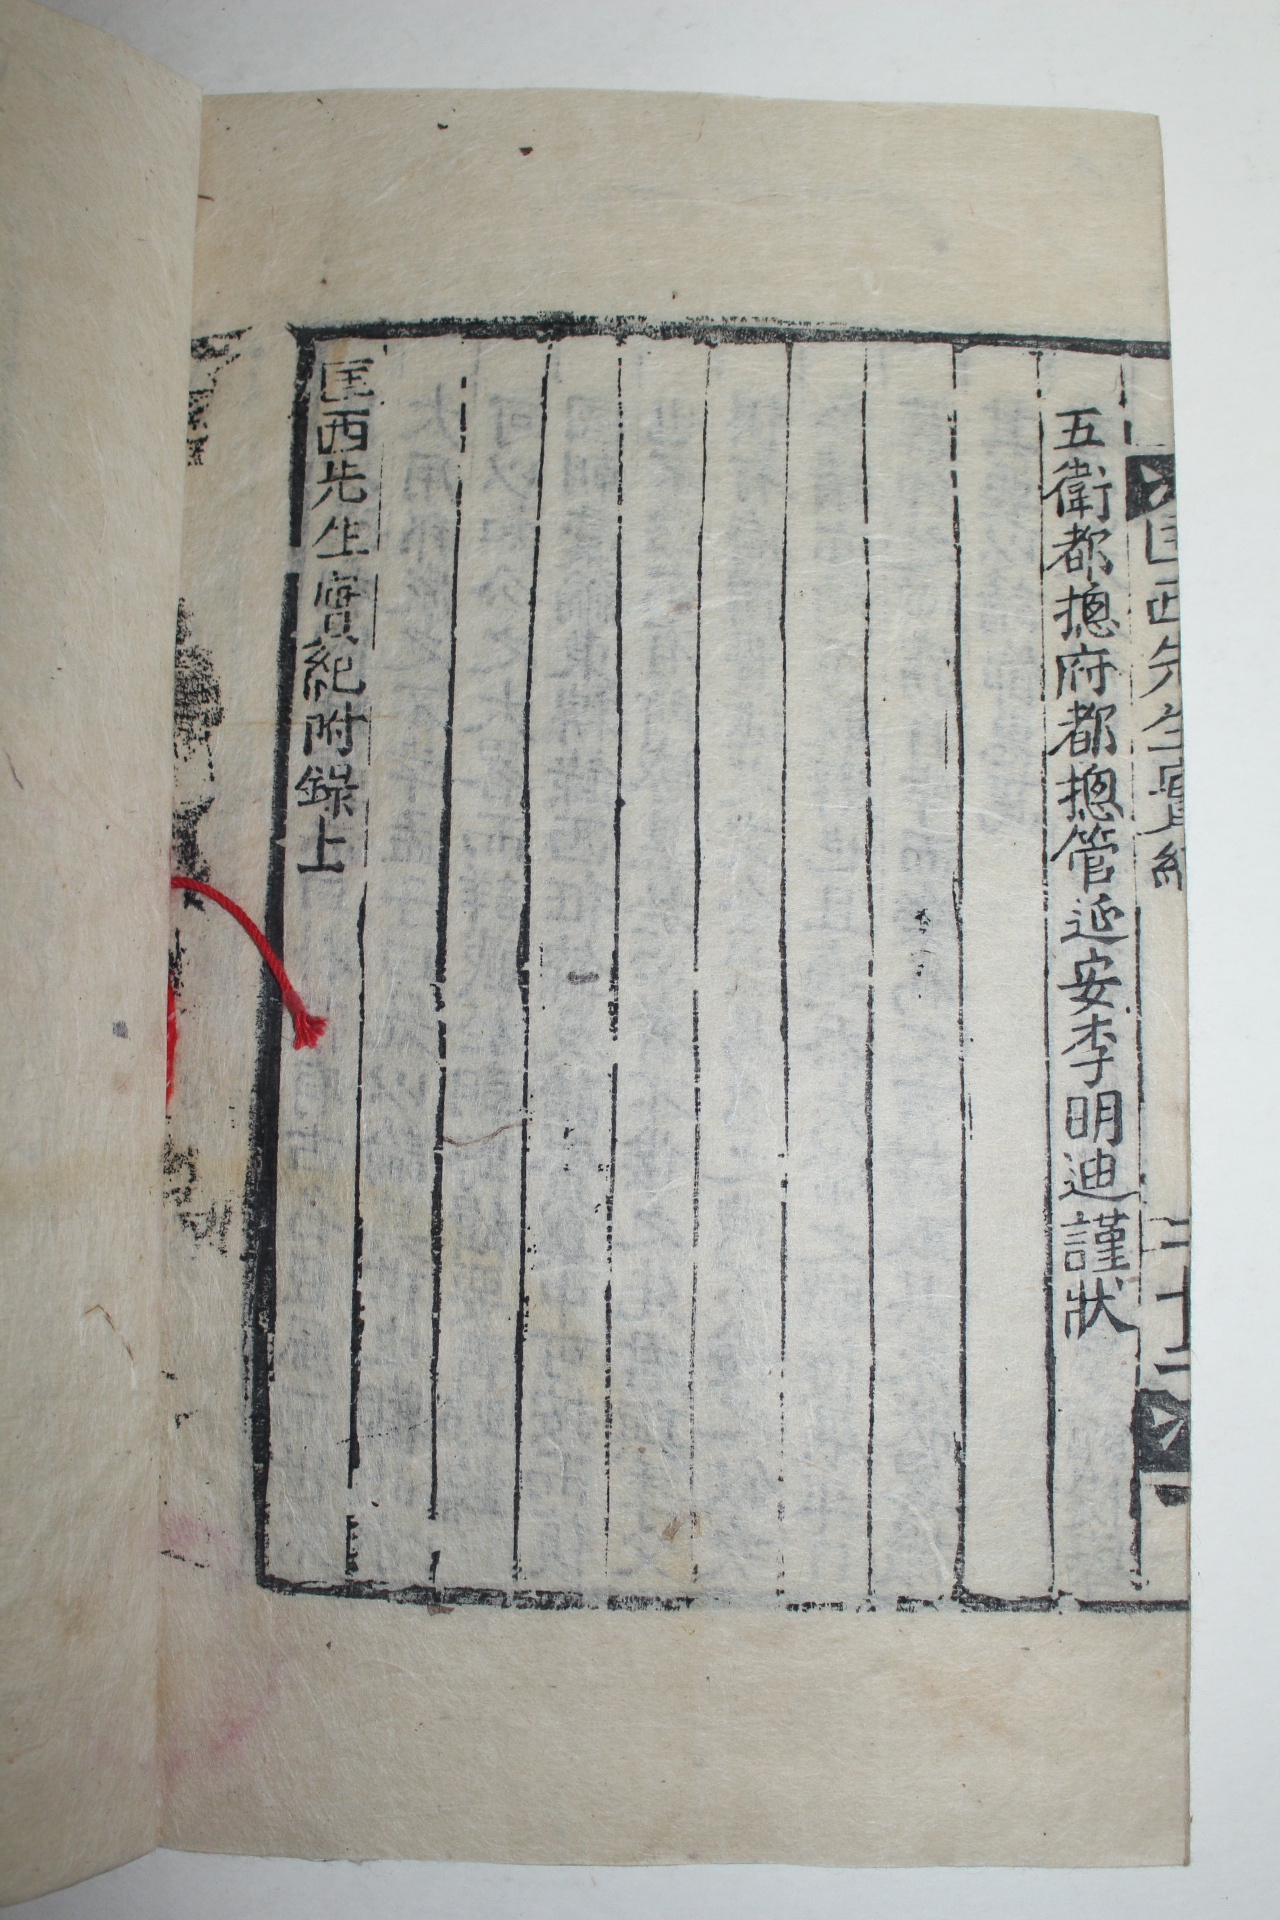 匡西先生實紀
二十二
五衛都摠府都摠管延安李明迪謹狀
匡西先生實紀附錄上